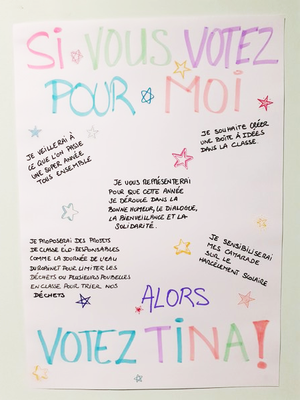 SI VOUS VOTEZ
POUR MOI
JE VEILLERAI À
CE QUE L'ON PASSE
UNE SUPER ANNÉE
TOUS ENSEMBLE
JE SOUHAITE CRÉER
UNE BOÎTE À IDÉES
DANS LA CLASSE.
JE VOUS REPRÉSENTERAI
POUR QUE CETTE ANNÉE
SE DÉROULE DANS LA
BONNE HUMEUR, LE DIALOGUE,
LA BIENVEILLANCE ET LA
SOLIDARITÉ.
JE PROPOSERAI DES PROJETS
DE CLASSE ÉCO-RESPONSABLES
COMME LA JOURNÉE DE L'EAU
DU ROBINET POUR LIMITER LES
DÉCHETS OU PLUSIEURS POUBELLES
EN CLASSE POUR TRIER NOS
DÉCHETS
JE SENSIBILISERAI
MES CAMARADE
SUR LE
HARCÈLEMENT SCOLAIRE
ALORS
VOTEZ TINA!